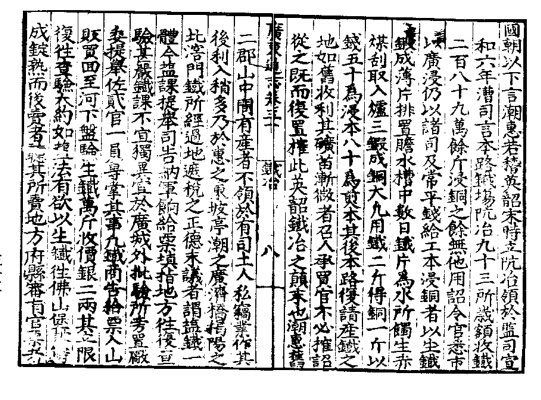 國朝以下言潮惠若英韶未時立阬冶領於監司宣
和六年漕司言本路鐵場阬冶九十三所歲額收鐵
二百八十九萬餘斤浸銅之餘無他用詔令官悉市
以廣浸仍以諸司及常平錢給工本浸銅者以生鐵
鍛成薄片排置膽水槽中數日鐵片為水所餌生赤
煤刮取入爐三煅成銅大凡用鐵二斤得銅一斤以
錢五十為浸本八十為煎本其後本路復請產鐵之
地如舊收利其礦苗漸微者召人承買官不必榷詔
從之既而復置榷此英韶鐵冶之顛末也潮惠舊
廣東通志卷三十
鐵冶
八
二郡山中間有產者不領於有司土人私鑄業作其
後利入稍多乃於惠之東坡亭潮之廣濟橋揭陽之
北窖門鐵所經過地遞稅之正德末議者謂鹽鐵一
體令鹽課提舉司告納軍餉給票填指地方往復查
驗其嚴鐵課不宜獨異宜於廣城外批驗所旁置廠
委提舉佐貳官一員專掌其事凡鐵商告給票入山
販買回至河下盤驗生鐵萬斤收價銀二兩其立限
復往查驗大約如鹽法有欲以生鐵往佛山堡
成錠熟而後賣者其所賣地方府縣審有官票